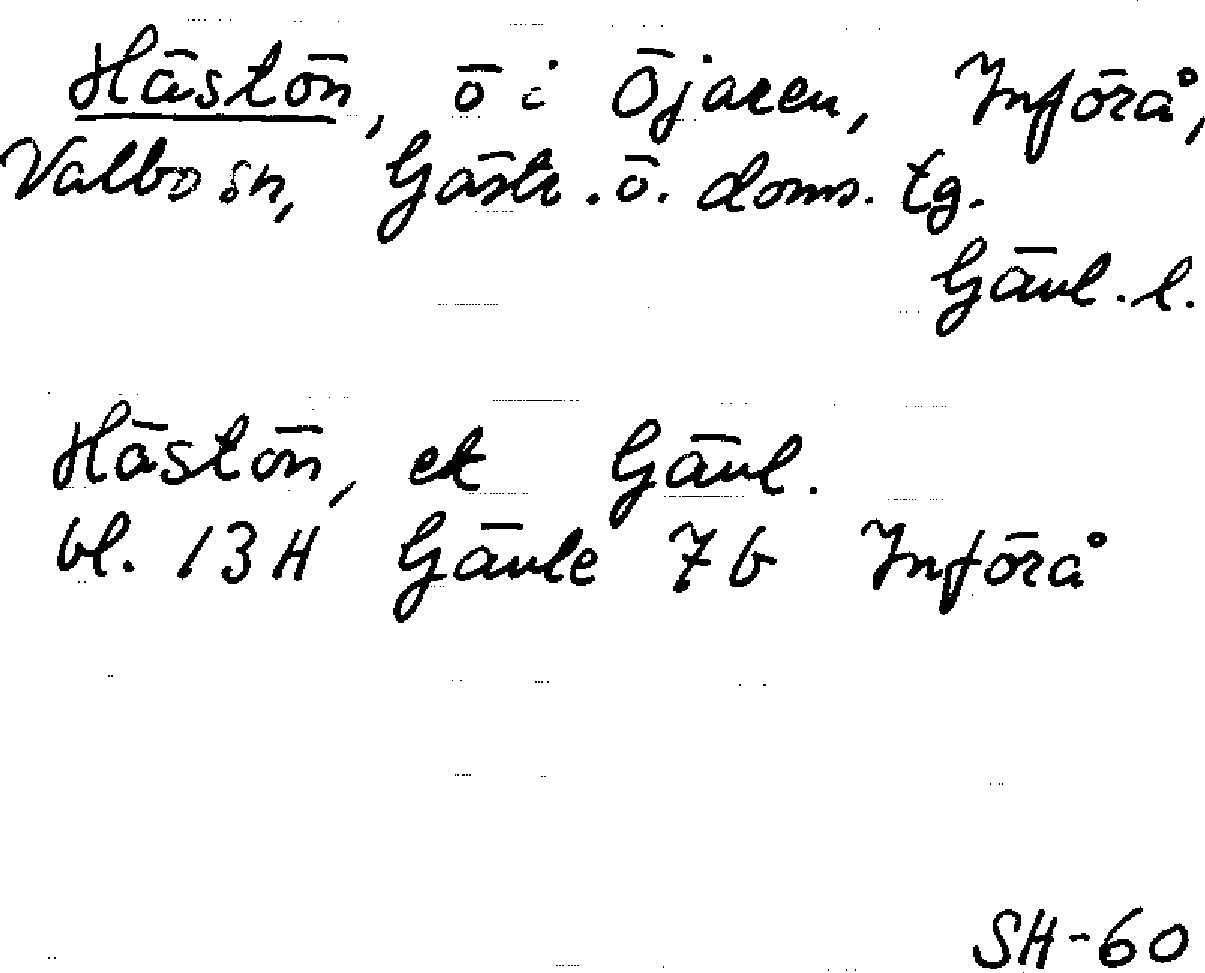 Hästön, ö i Öjaren, Införå,
Valbo sn, Gästr. ö. doms. tg.
Gävl. l.
Hästön, ek Gävl.
bl. 13H Gävle 7b Införå
SH-60